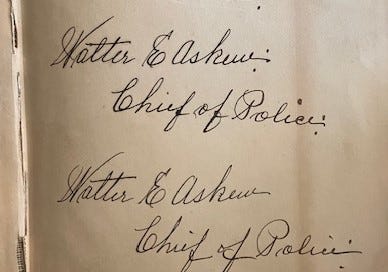 Walter E Askew.
Chief of Police.
Walter E Askew
Chief of Police